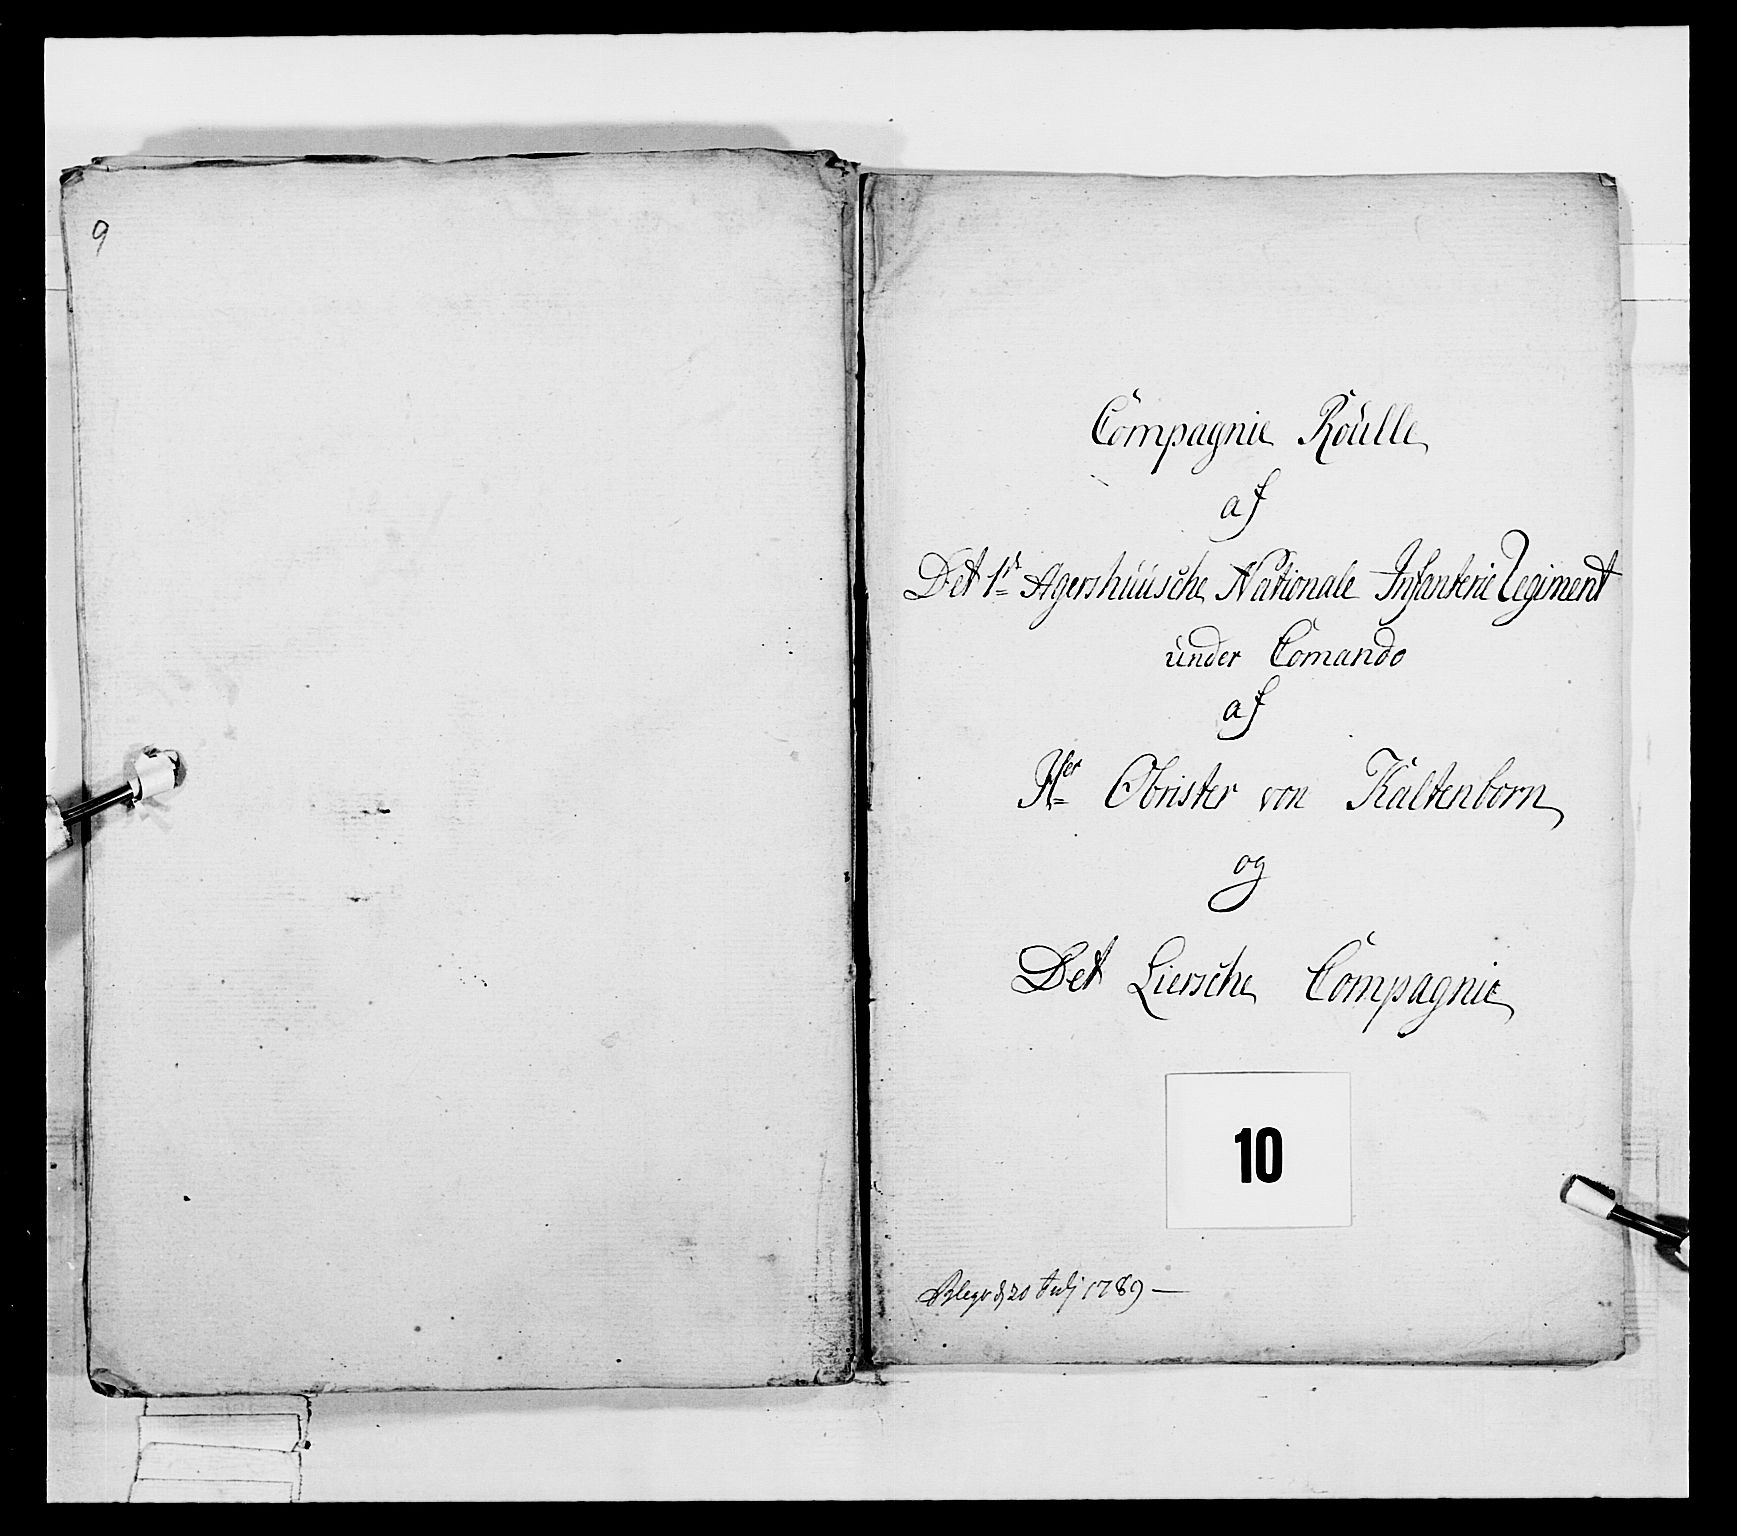 9
Compagnie Roulle
af
Det 1ste Agershuusche Nationale Infanterie Regiment
under Comando
af
Her Obrister von Kaltenborn
og
Det Liersche Compagnie
10
20 Julj 1789 —